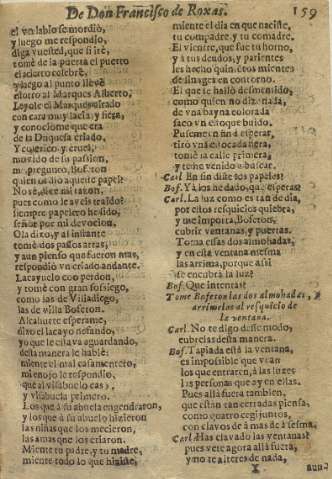 De Don Francisco de Roxas. 159
el un labio se mordio,
y luego me respondio,
diga vuested, que si irè,
tomè de la puerta el puerto
el acierto celebrè,
y luego al punto llevè
estotro al Marques Alberto,
Leyole el Marques airado
con cara muy lacia, y fiera,
y conociome que era
de la Duquesa criado,
Y colerico, y cruel,
movido de su passion,
me pregunto, Boferon
quien os dio aqueste papel?
No sè, dixe mi razon,
pues como le aveis traido?
siempre papelero he sido,
señor por mi devocion.
Ola dixo, y al instante
tomè dos passos atras,
y aun pienso que fueron mas,
respondiò un criado andante.
Lacayuelo con perdon,
y tomè con gran sosiego,
como las de Villadiego,
las de villa Boferon.
Alcahuete esperante,
dixo el lacayo nefando,
yo que le estava aguardando,
desta manera le hablè:
miente el mal casamentero,
mi enojo le respondiò,
que al villabuelo
y villabuela primero.
Los que à su abuela engendraron,
y los que à su abuelo hizieron
las niñas que los mecieron,
las amas que los criaron.
Miente tu padre, y tu madre,
miente todo lo que hiziste,
miente el dia en que naciste,
tu compadre, y tu comadre.
El vientre, que fue tu horno,
y à tus deudos, y parientes
les hecho quinientos mientes
de sinagera en contorno.
El que se hallò desmentido,
como quien no dize nada,
de una bayna colorada
saco un estoque bruido.
Puseme en fin à esperar,
tiro una estocada negra,
tomè la calle primera,
y teme venido a buscar.
Carl. En fin diste los papeles?
Bof. Ya los he dado, que esperas?
Carl. La luz como es tan de dia,
por essos resquicios quiebra,
y me importa, Boferon,
cubrir ventanas, y puertas.
Toma essas dos almohadas,
y en esta ventana mesma
las arrima, porque assi
se encubra la luz?
Bof. Que intentas?
Tome Boferon las dos almohadas, y
arrimelas al resquicio de
la ventana.
Carl. No te digo desse modo,
cubrelas desta manera.
Bof. Tapiada està la ventana,
es impossible que vean
los que entraren, à las luzes
las personas que ay en ellas.
Pues alla fuera tambien,
que estàn tan cerradas piensa,
como quatro cegijuntos,
con clavos de à mas de à sesma.
Carl. Has clavado las ventanas?
pues vete agora allà fuera,
y no te alteres de nada,
X aun-